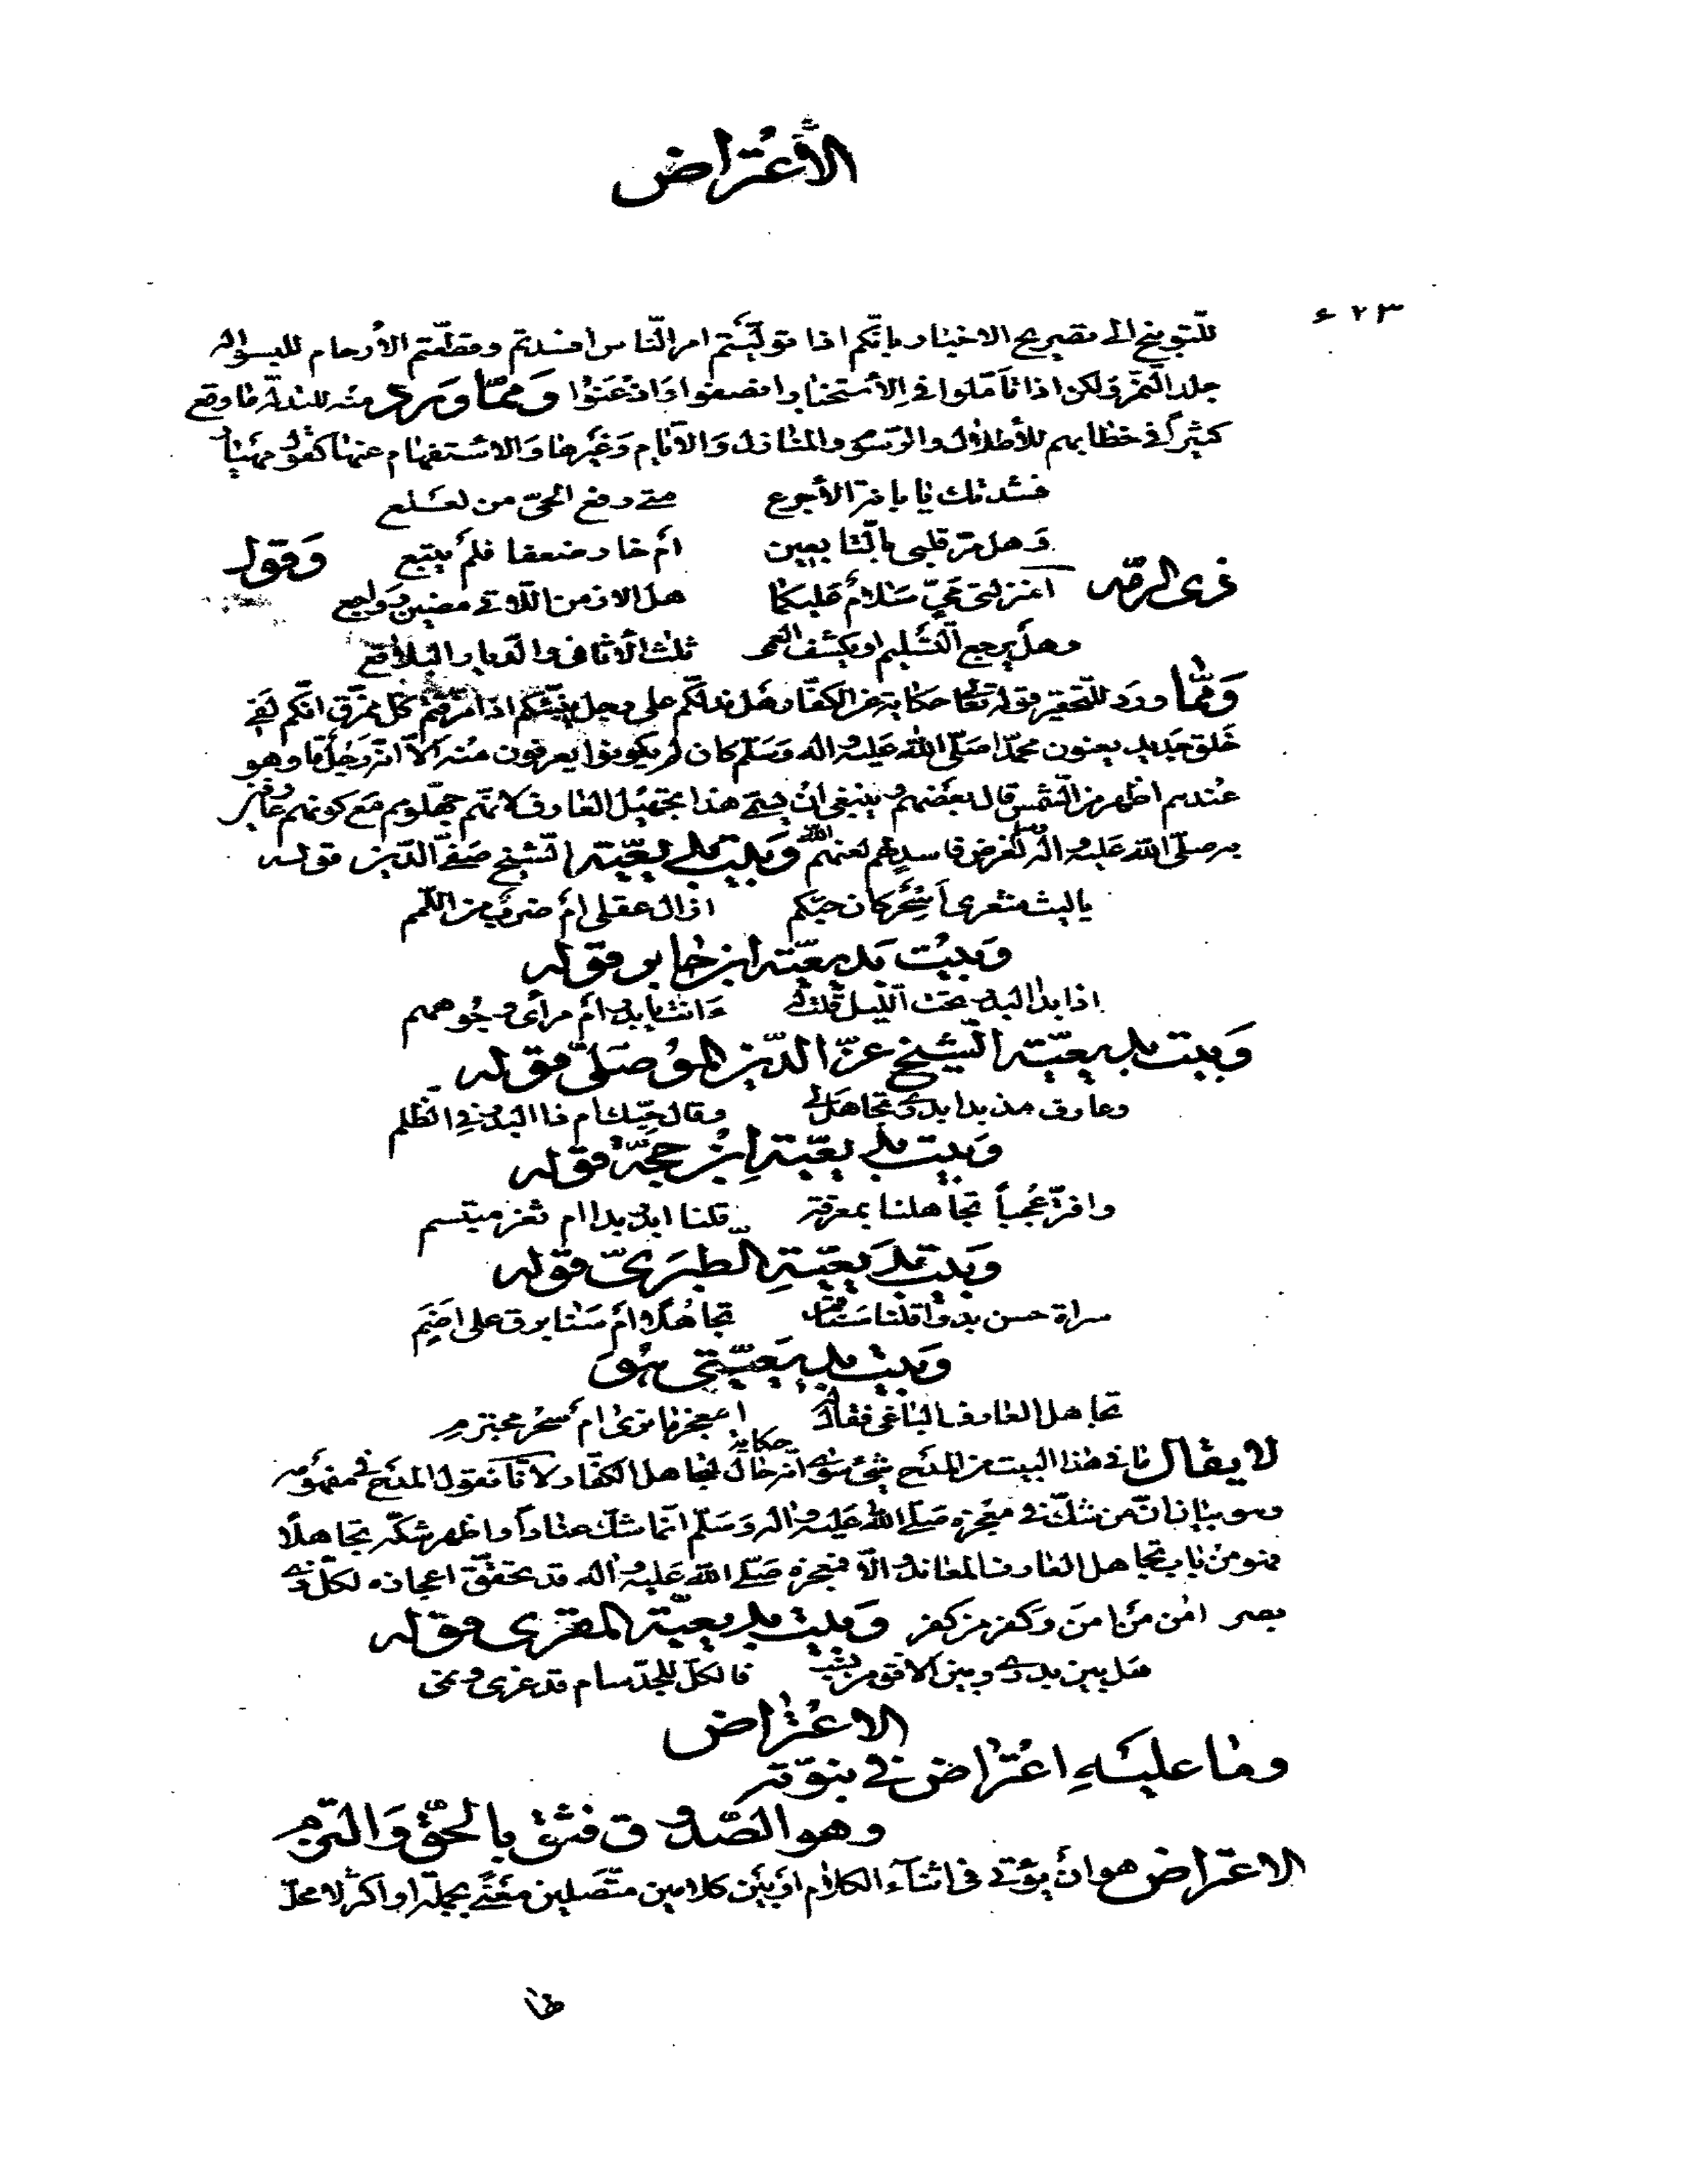 الاعتراض
٤٢٣
للتوبيخ الى تصريح الاخبار بانكم اذا توليتم امر الناس افسدتم وقطعتم الأرحام لليسواله
جلد النمر ولكن اذا تأملوا في الأستخبار انصفوا واذعنوا ومما ورد منه للتدله ما وقع
كثيراً في خطابهم للأطلال والرسوم والمنازل والايام وغيرها والاستفهام عنها كقول مهيار
نشدتك يا بانة الأجرع متى رفع الحيّ من لعلع
وهل مرّ قلبي بالتابعين أم خار ضعفا فلم يتبع وقول
ذى الرمّه أمنزلتي ميّ سلام عليكما هل الازمن اللاتي مضين رواجع
وهل يرجع التسليم او يكشف العمى ثلث الأثافي والديار البلاقع
ومما ورد للتحقير قوله تعالى حكاية عن الكفار هل ندلكم على رجل ينبئكم اذا مزقتم كل ممزق انكم لفي
خلق جديد يعنون محمدا صلّى الله عليه واله وسلم كان لم يكونوا يعرفون منه الاّ انه رجل ما وهو
عندهم اظهر من الشمس قال بعضهم وينبغي ان يسمى هذا بتجهيل العارف لانهم جهلوهم مع كونهم عارفين
به صلى الله عليه واله وسلم لغرض فاسد لهم لعنهم الله وبيت بديعيّة الشيخ صفي الدين قوله
ياليت شعرى أسحر كان حبكم ازال عقلى أم ضرب من اللمم
وبيت بديعيّة ابن جابر قوله
اذا بدا البدر تحت الليل قلت له ءأنت يا بدر أم مرأى وجوههم
وبيت بديعيّة الشيخ عزّ الدين الموصلي قوله
وعارف مذ بدا بدرى تجاهل لي وقال حبك ام ذا البدر في الظلم
وبيت بديعيّة ابن حجة قوله
وافترّ عجباً تجاهلنا بمعرفة قلنا ابدر بدا ام ثغر مبتسم
وبيت بديعيّة الطبري قوله
سراة حسن بدوا قلنا تجاهلاً أم سنا برق على اضم
وبيت بديعيّتي هو
تجاهل العارف الباغي فقال له امعجز ما نرى أم سحر مجترم
لا يقال ما في هذا البيت من المدح شئ سوى انه حكاية لحال تجاهل الكفار لأنا نقول المدح في مفهومه
وهو بيان ان من شك في معجزه صلى الله عليه واله وسلم انما شك عناداً واظهر شكه تجاهلاً
فهو من باب تجاهل العارف المعاند والاّ فمعجزه صلى الله عليه واله قد تحقق اعجازه لكل ذى
بصر امن من امن وكفر من كفر وبيت بديعيّة المقري قوله
هل بين بدرى وبين الافق من نسب فالكل للمجد سام قد عزى ونمى
الاعتراض
وما عليه اعتراض في نبوّته
وهو الصّدوق فثق بالحقّ والتزم
الاعتراض هو ان يؤتى في اثناء الكلام أو بين كلامين متصلين معنى بجملة او اكثر لا محل
لها